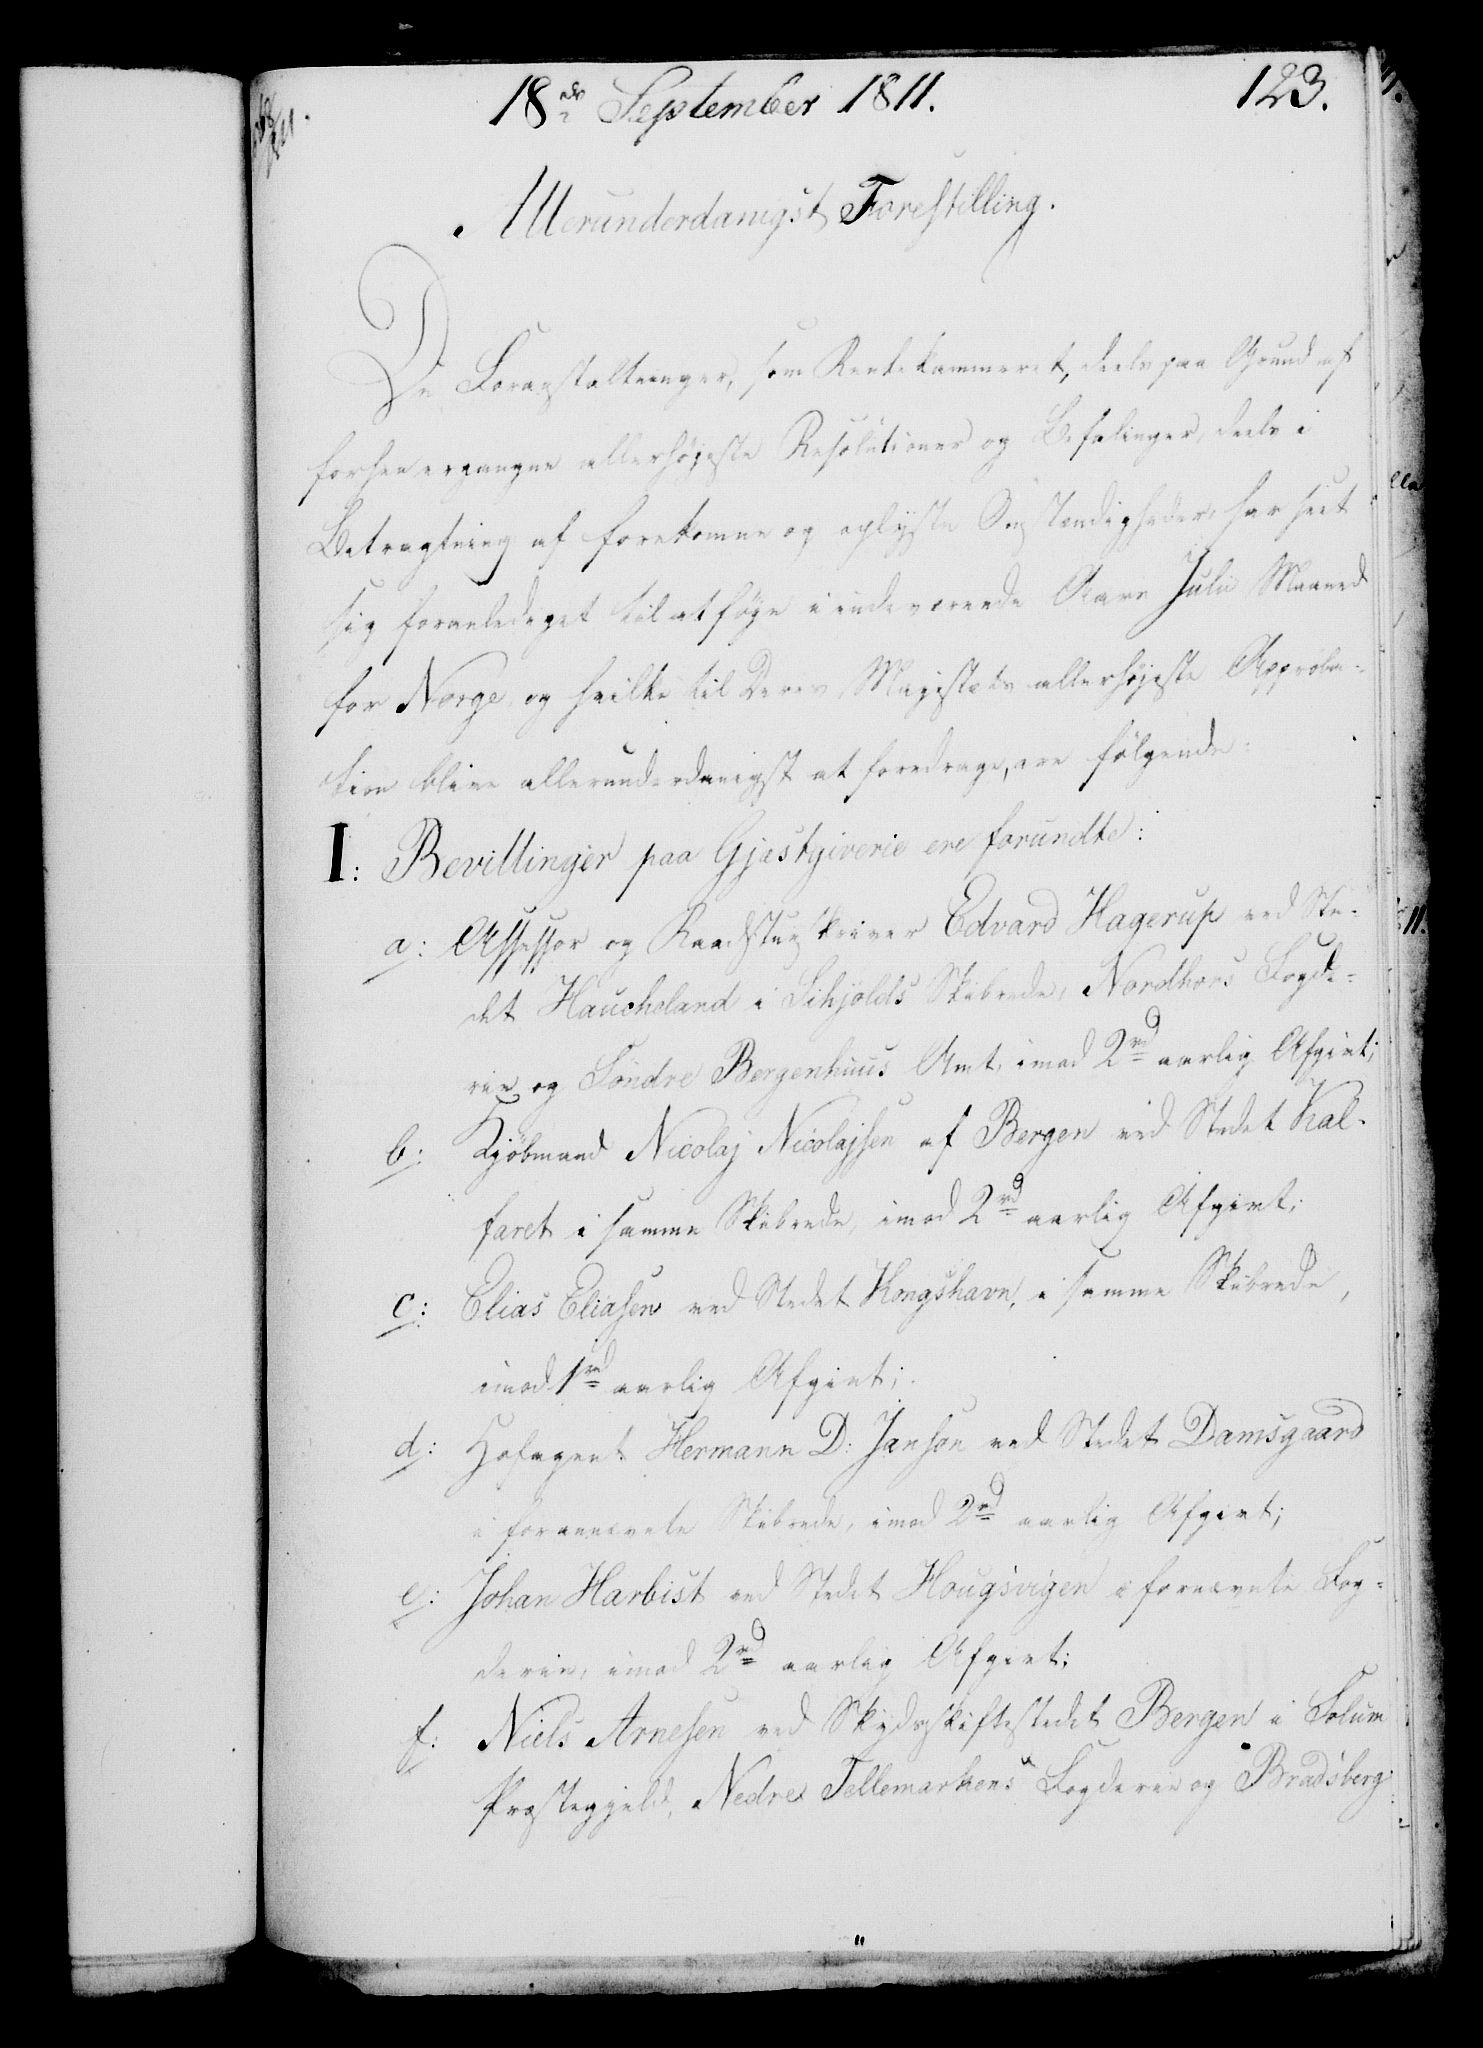 18de September 1811.
123.
Allerunderdanigst Forestilling.
De Foranstaltninger, som Rentekammeret, deels paa Grund af
forhen ergangne allerhøjeste Resolutioner og Befalinger, deels i
Betragtning af forekomne og oplyste Omstændigheder, har seet
sig foranlediget til at føje i indeværende Aars Julii Maaned
for Norge, og hvilke til Deres Majestæts allerhøjeste Approba-
tion blive allerunderdanigst at foredrage, ere følgende:
I: Bevillinger paa Gjæstgiverie ere forundte:
a: Assessor og Raadstueskriver Edvard Hagerup ved Ste-
det Haucheland i Schjolds Skibrede, Nordhors Fogde-
rie og Söndre Bergenhuus Amt, imod 2rd aarlig Afgivt;
b: Kjöbmand Nicolaj Nicolajsen af Bergen ved Stedet Kal-
faret i samme Skibrede, imod 2rd aarlig Afgivt;
c: Elias Eliasen ved Stedet Kongshavn, i samme Skibrede,
imod 1rd aarlig Afgivt;
d: Hofagent Hermann D: Janson ved Stedet Damsgaard
i forannævnte Skibrede, imod 2rd aarlig Afgivt;
e: Johan Harbist ved Stedet Hougsvigen i fornævnte Fog-
derie, imod 2rd aarlig Afgivt;
f: Niels Arnesen ved Skydsskiftestedet Bergen i Solum
Præstegjeld, Nedre Tellemarkens Fogderie og Bradsberg